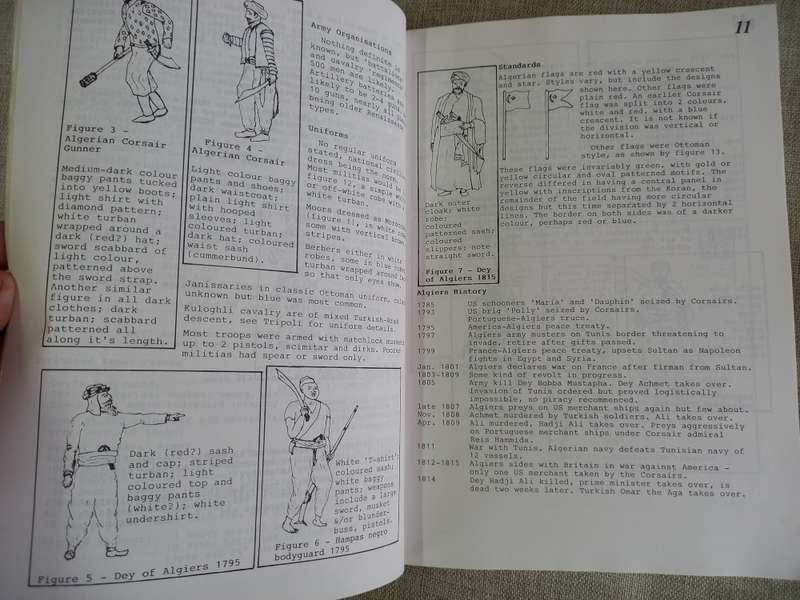 Figure 3 -
Algerian Corsair
Gunner
Medium-dark colour
baggy pants tucked
into yellow boots;
light shirt with
diamond pattern;
white turban
wrapped around a
dark (red?) hat;
sword scabbard of
light colour,
patterned above
the sword strap.
Another similar
figure in all dark
clothes; dark
turban; scabbard
patterned all
along it's length.
Figure 4 -
Algerian Corsair
Light colour baggy
pants and shoes;
dark waistcoat;
plain light shirt
with hooped
sleeves; light
coloured turban;
dark hat; coloured
waist sash
(cummerbund).
Army Organisations
Nothing definite is
known, but 'battalions'
and cavalry 'regiments'
500 men are likely.
Artillery batteries are
likely to be 2-4 guns
10 guns, nearly all
being older Renaissance
types.
Uniforms
No regular uniform
stated, national civilian
dress being the norm.
Most militias would be
figure 12, a simple white
or off-white robe with
white turban.
Moors dressed as Moroccans
(figure 1), in white
some with vertical brown
stripes.
Berbers either in white
robes, some in blue robes
turban wrapped around
so that only eyes show.
Janissaries in classic Ottoman uniform,
unknown but blue was most common.
Kuloghli cavalry are of mixed Turkish-Arab
descent, see Tripoli for uniform details.
Most troops were armed with matchlock muskets
up to 2 pistols, scimitar and dirks. Poorer
militias had spear or sword only.
Dark (red?) sash
and cap; striped
turban; light
coloured top and
baggy pants
(white?); white
undershirt.
Figure 5 - Dey of Algiers 1795
White 'T-shirt';
coloured sash;
white baggy
pants; weapons
include a large
sword, musket
&/or blunder-
buss, pistols.
Figure 6 - Hampas negro
bodyguard 1795
11
Dark outer
cloak; white
robe;
coloured
patterned sash;
coloured
slippers; note
straight sword.
Figure 7 - Dey
of Algiers 1815
Standards
Algerian flags are red with a yellow crescent
and star. Styles vary, but include the designs
shown here. Other flags were
plain red. An earlier Corsair
flag was split into 2 colours,
white and red, with a blue
crescent. It is not known if
the division was vertical or
horizontal.
Other flags were Ottoman
style, as shown by figure 13.
These flags were invariably green, with gold or
yellow circular and oval patterned motifs. The
reverse differed in having a central panel in
yellow with inscriptions from the Koran, the
remainder of the field having more circular
designs but this time separated by 2 horizontal
lines. The border on both sides was of a darker
colour, perhaps red or blue.
Algiers History
1785 US schooners 'Maria' and 'Dauphin' seized by Corsairs.
1793 US brig 'Polly' seized by Corsairs.
Portuguese-Algiers truce.
1795 America-Algiers peace treaty.
1797 Algiers army musters on Tunis border threatening to
invade, retire after gifts passed.
1799 France-Algiers peace treaty, upsets Sultan as Napoleon
fights in Egypt and Syria.
Jan. 1801 Algiers declares war on France after firman from Sultan.
1803-1809 Some kind of revolt in progress.
1805 Army kill Dey Bobba Mustapha. Dey Achmet takes over.
Invasion of Tunis ordered but proved logistically
impossible, so piracy recommenced.
late 1807 Algiers preys on US merchant ships again but few about.
Nov. 1808 Achmet murdered by Turkish soldiers. Ali takes over.
Apr. 1809 Ali murdered, Hadji Ali takes over. Preys aggressively
on Portuguese merchant ships under Corsair admiral
Reis Hammida.
1811 War with Tunis. Algerian navy defeats Tunisian navy of
12 vessels.
1812-1815 Algiers sides with Britain in war against America -
only one US merchant taken by the Corsairs.
1814 Dey Hadji Ali killed, prime minister takes over, is
dead two weeks later. Turkish Omar the Aga takes over.